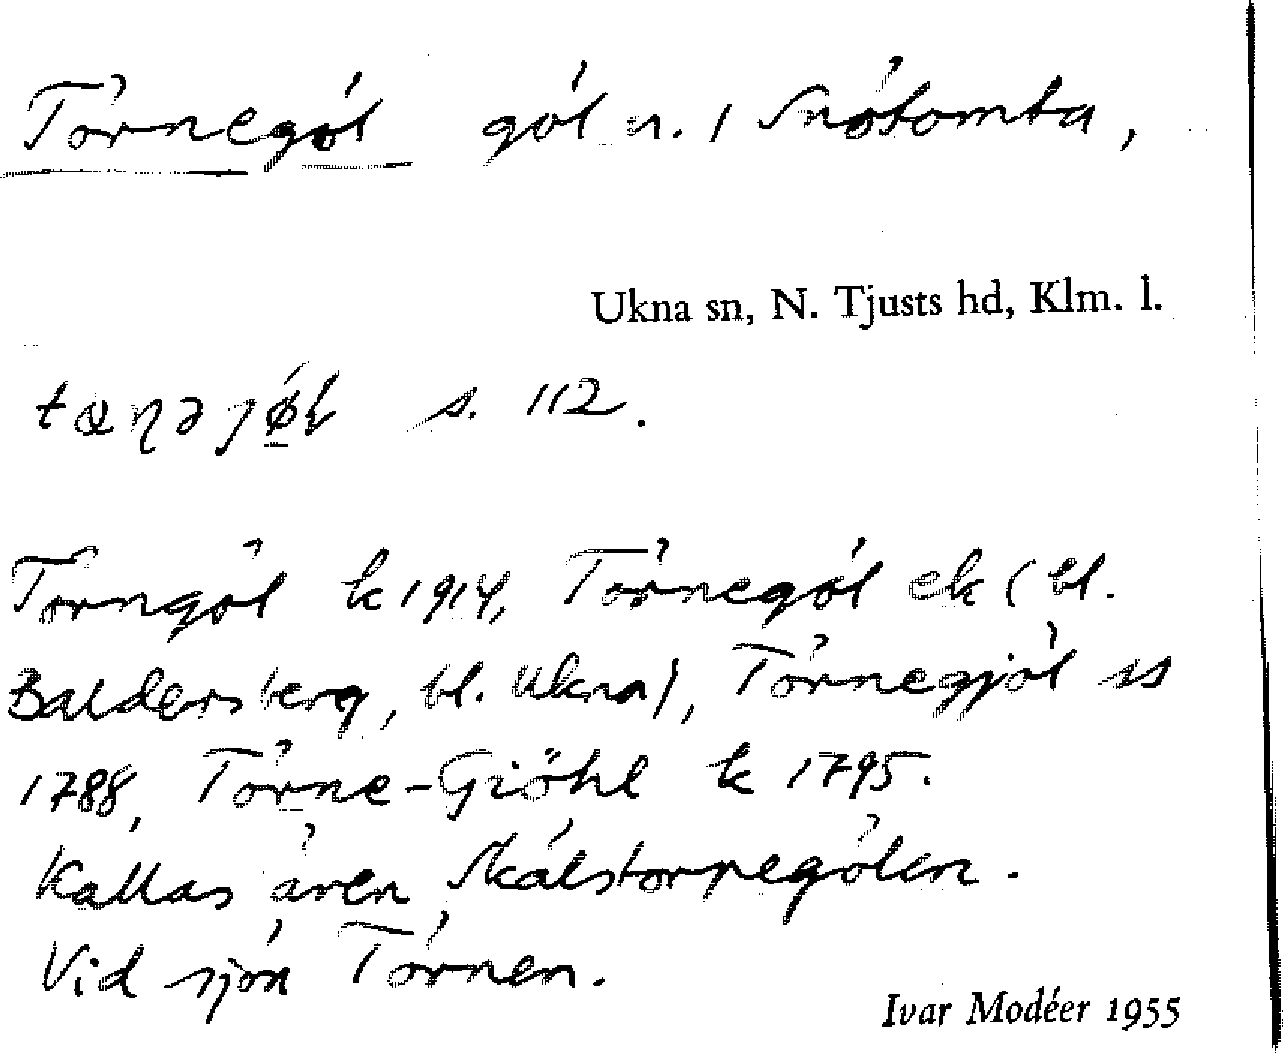 Törnegöl göl n. / Snötomta,
Ukna sn, N. Tjusts hd, Klm. l.
tœɳəjǿl s. 112.
Törngöl k 1914, Törnegöl ek (bl.
Baldersberg, bl. Ukna), Törnegjöl ss
1788, Törne-Giöhl k 1795.
Kallas även Skälstorpegölen.
Vid sjön Törnen.
Ivar Modéer 1955